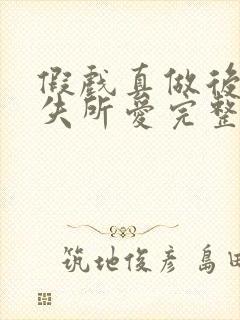 假戲真做後
失所愛完整
筑地俊彥 島田